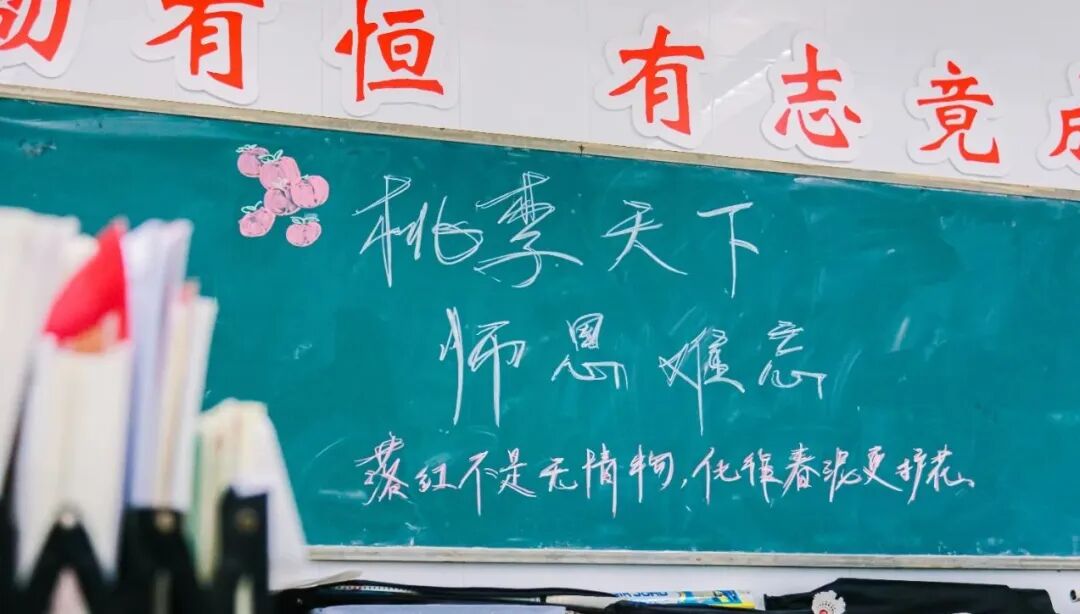 有恒 有志竟成
桃李天下
师恩难忘
落红不是无情物,化作春泥更护花。